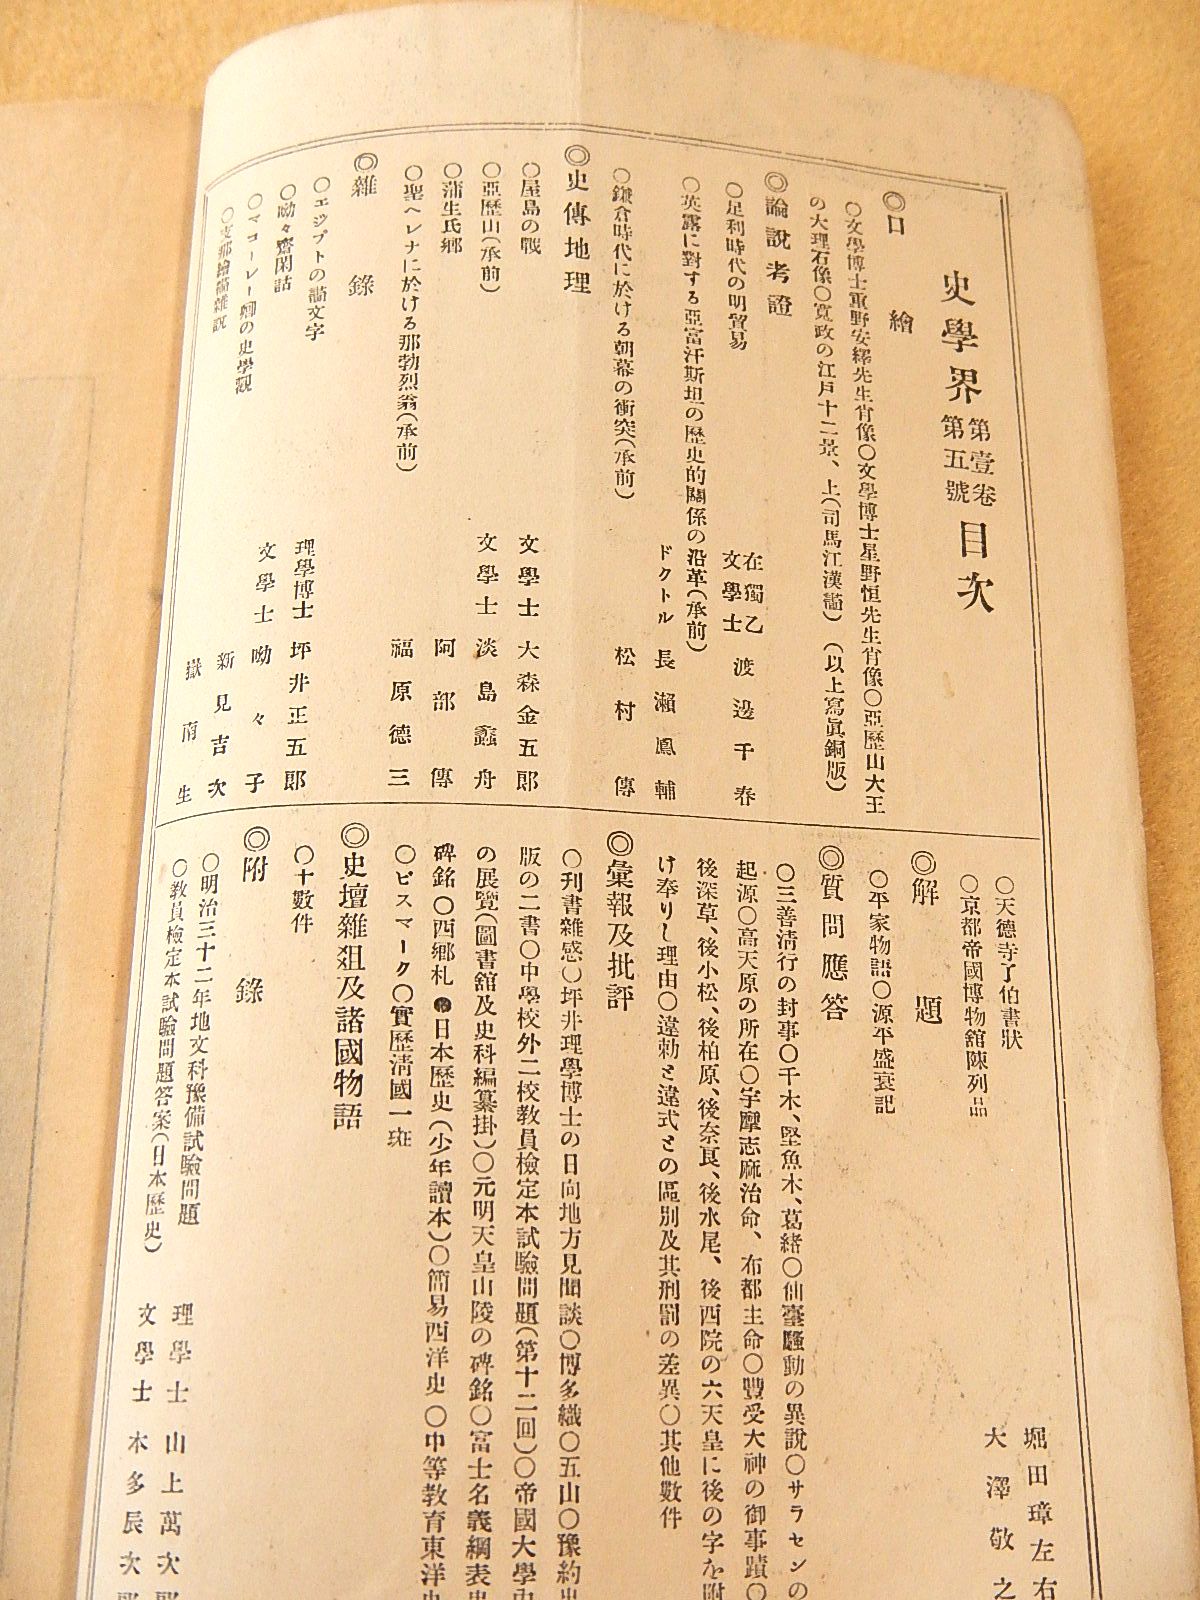 史學界 第壹卷 第五號 目次
◎口繪
○文學博士重野安繹先生肖像○文學博士星野恒先生肖像○亞歷山大王
の大理石像○寬政の江戶十二景、上(司馬江漢畵)(以上寫眞銅版)
◎論說考證
○足利時代の明貿易 在獨乙 文學士 渡邊千春
○英露に對する亞富汗斯坦の歷史的關係の沿革(承前)
ドクトル 長瀨鳳輔
○鎌倉時代に於ける朝幕の衝突(承前) 松村傳
◎史傳地理
○屋島の戰 文學士 大森金五郎
○亞歷山(承前) 文學士 淡島蠡舟
○蒲生氏鄕 阿部傳
○聖ヘレナに於ける那勃烈翁(承前) 福原德三
◎雜錄
○エジプトの畵文字 理學博士 坪井正五郎
○呦々齋閑話 文學士 呦々子
○マコーレー卿の史學觀 新見吉次
○支那繪畵雜說 嶽南生
○天德寺了伯書狀 堀田璋左右
○京都帝國博物館陳列品 大澤敬之
◎解題
○平家物語○源平盛衰記
◎質問應答
○三善淸行の封事○千木、堅魚木、葛緖○仙臺騷動の異說○サラセンの
起源○高天原の所在○宇摩志麻治命、布都主命○豐受大神の御事蹟○
後深草、後小松、後柏原、後奈良、後水尾、後西院の六天皇に後の字を附
け奉りし理由○違勅と違式との區別及其刑罰の差異○其他數件
◎彙報及批評
○刊書雜感○坪井理學博士の日向地方見聞談○博多織○五山○豫約出
版の二書○中學校外二校敎員檢定本試驗問題(第十二回)○帝國大學史
の展覽(圖書館及史料編纂掛)○元明天皇山陵の碑銘○富士名義綱表出
碑銘○西鄕札●日本歷史(少年讀本)○簡易西洋史○中等敎育東洋史
○ビスマーク○實歷淸國一斑
◎史壇雜俎及諸國物語
○十數件
◎附錄
○明治三十二年地文科豫備試驗問題 理學士 山上萬次郎
○敎員檢定本試驗問題答案(日本歷史) 文學士 本多辰次郎